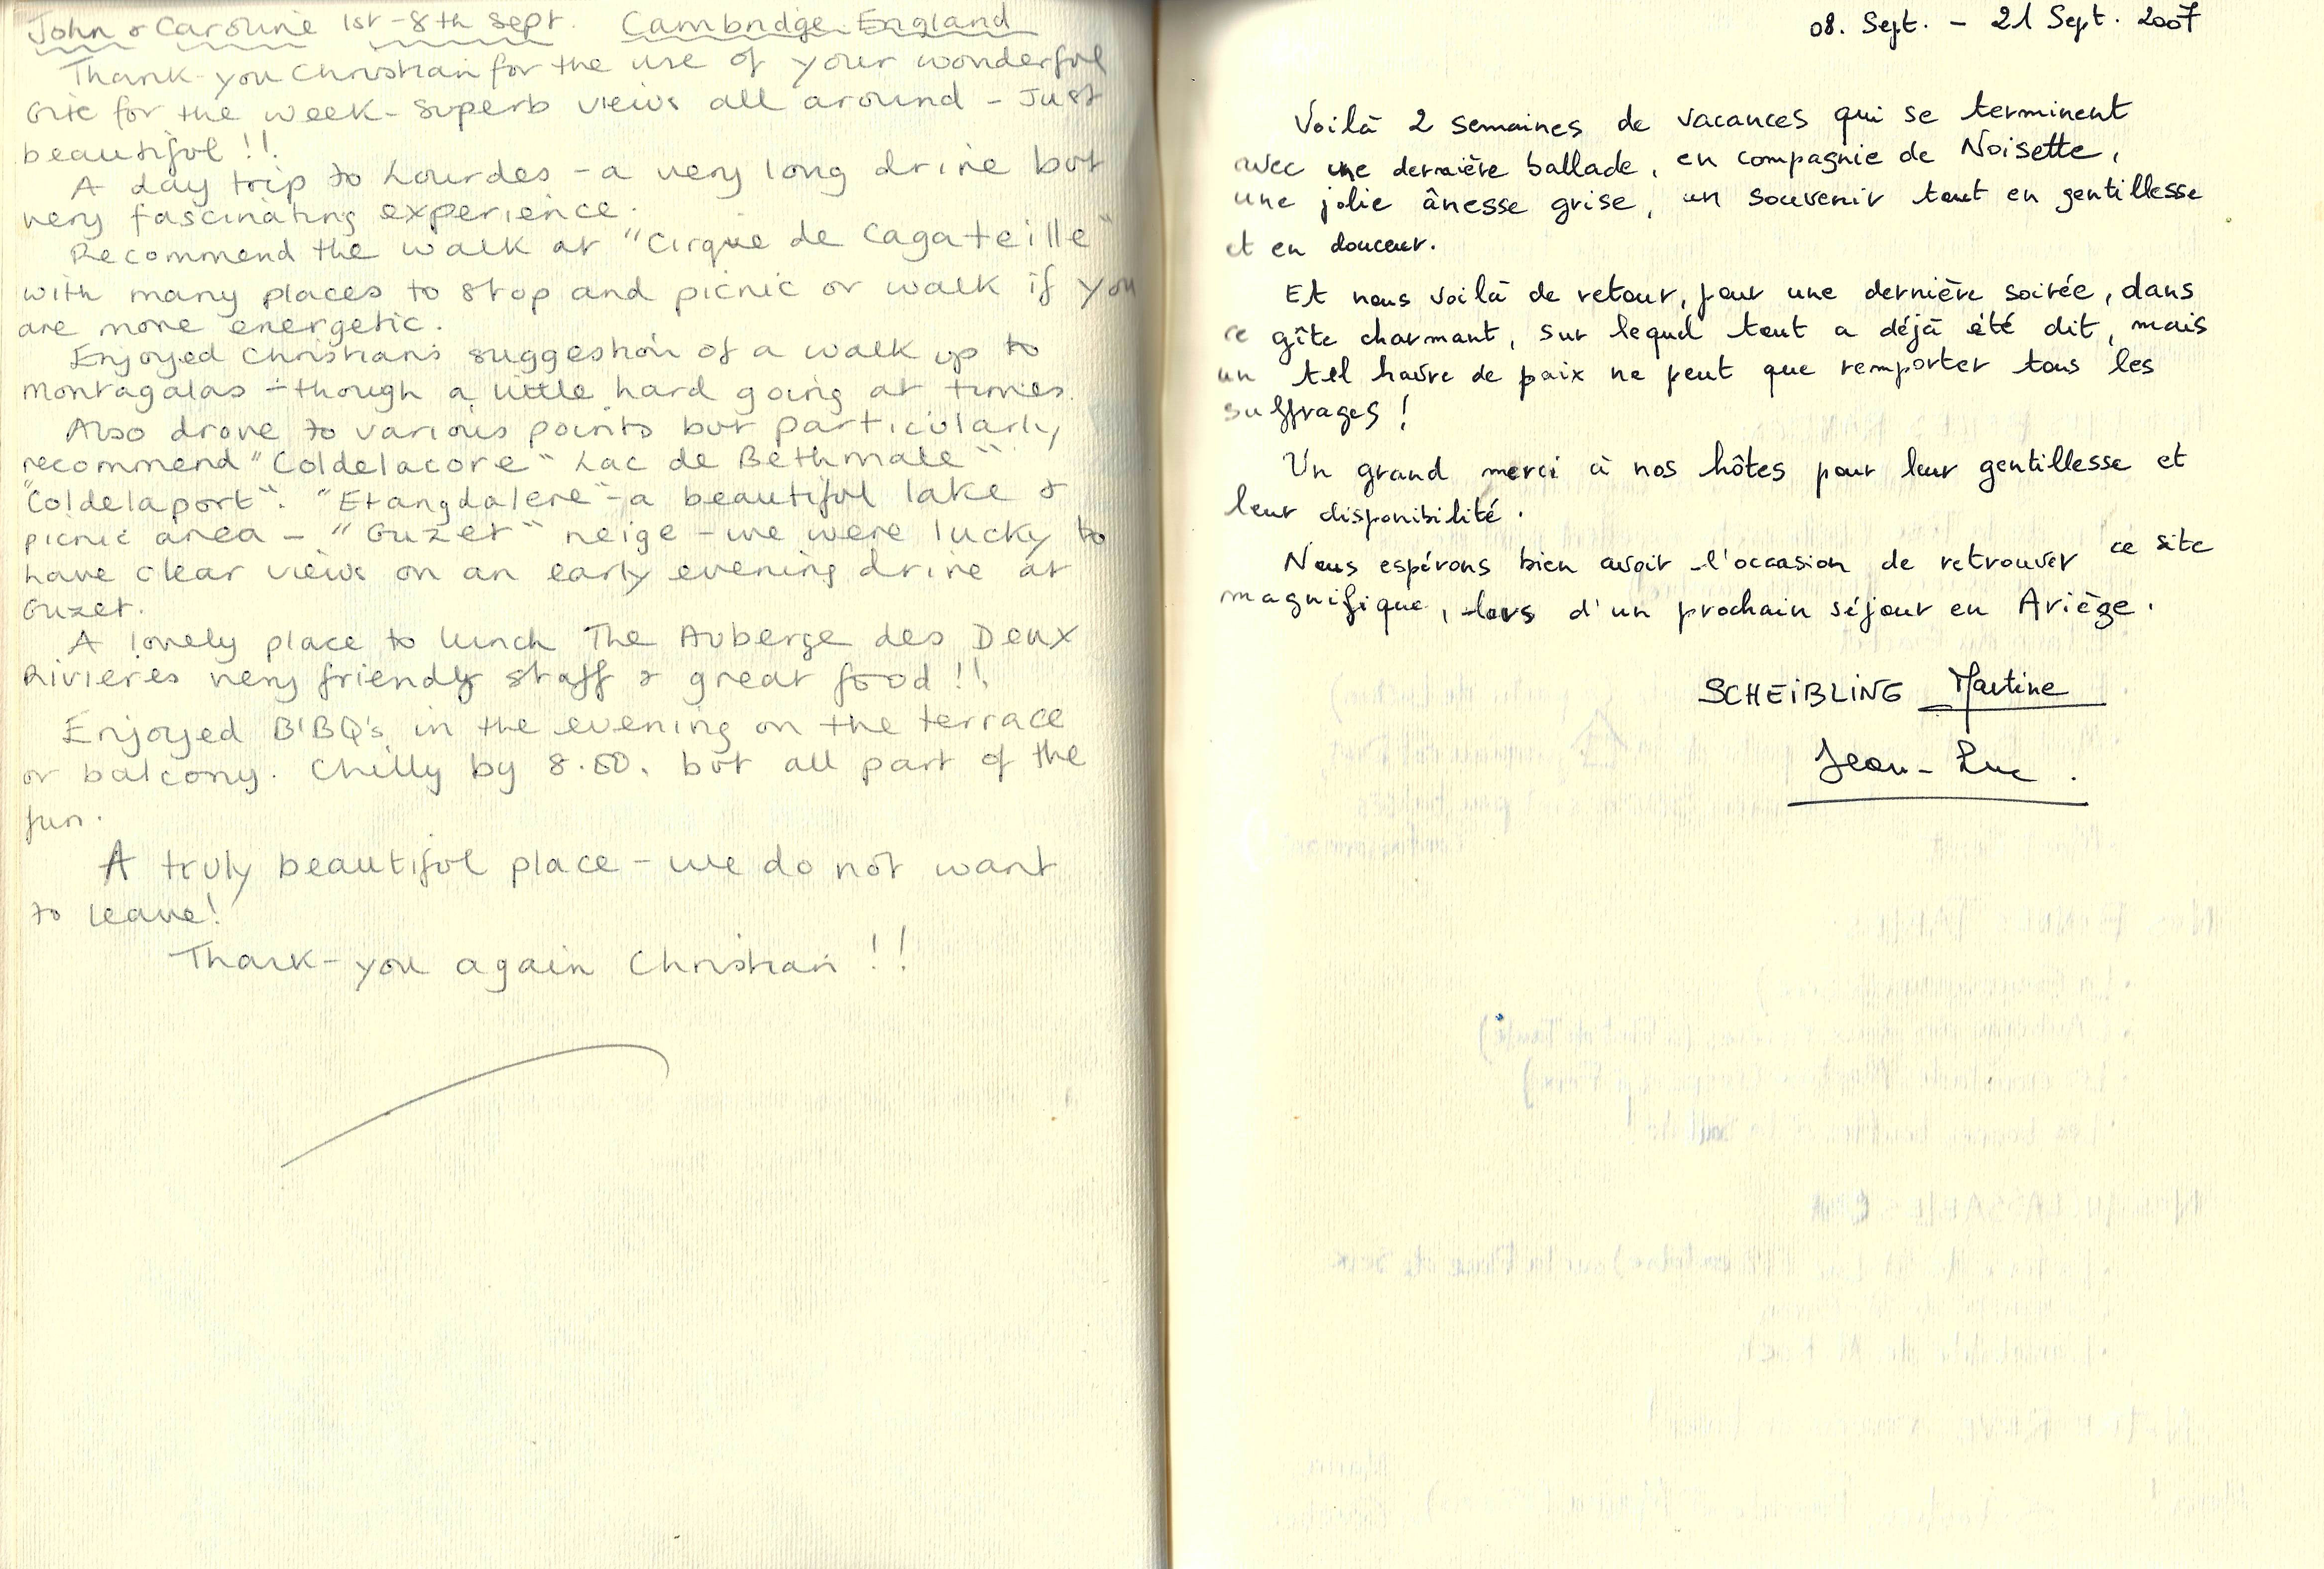 John & Caroline 1st-8th Sept. Cambridge England
Thank-you Christian for the use of your wonderful
Gite for the week - superb views all around - Just
beautiful !!
A day trip to Lourdes - a very long drive but
very fascinating experience.
Recommend the walk at "Cirque de Cagateille"
with many places to stop and picnic or walk if you
are more energetic.
Enjoyed Christian's suggestion of a walk up to
Montagalas - though a little hard going at times.
Also drove to various points but particularly
recommend "Coldelacore" Lac de Bethmale"
"Coldelaport". "Etangdalere" - a beautiful lake &
picnic area - "Guzet" neige - we were lucky to
have clear views on an early evening drive at
Guzet.
A lovely place to lunch The Auberge des Deux
Rivieres very friendly staff & great food !!
Enjoyed B'BQ's in the evening on the terrace
or balcony. Chilly by 8. but all part of the
fun.
A truly beautiful place - we do not want
to leave!
Thank-you again Christian !!
08. Sept. - 21 Sept. 2007
Voilà 2 semaines de vacances qui se terminent
avec une dernière ballade, en compagnie de Noisette,
une jolie ânesse grise, un souvenir tout en gentillesse
et en douceur.
Et nous voilà de retour, pour une dernière soirée, dans
ce gîte charmant, sur lequel tout a déjà été dit, mais
un tel havre de paix ne peut que remporter tous les
suffrages !
Un grand merci à nos hôtes pour leur gentillesse et
leur disponibilité.
Nous espérons bien avoir l'occasion de retrouver ce site
magnifique, lors d'un prochain séjour en Ariège.
SCHEIBLING Martine
Jean-Luc.